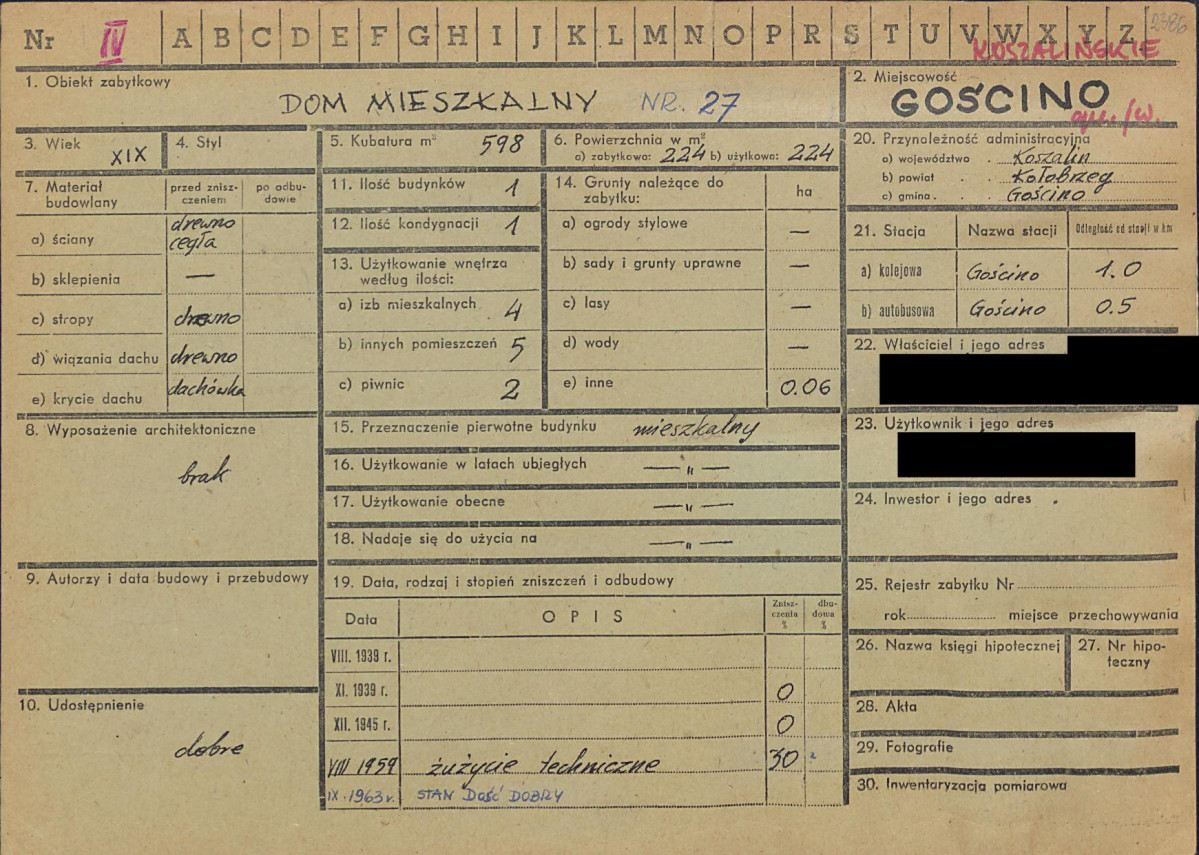 Nr IV A B C D E F G H I J K L M N O P R S T U V W X Y Z 2386
KOSZALIŃSKIE
1. Obiekt zabytkowy
DOM MIESZKALNY NR. 27
2. Miejscowość
GOŚCINO
3. Wiek XIX
4. Styl
5. Kubatura m³ 598
6. Powierzchnia w m²
a) zabytkowa: 224 b) użytkowa: 224
7. Materiał budowlany
przed zniszczeniem
po odbudowie
a) ściany drewno cegła
b) sklepienia —
c) stropy drewno
d) wiązania dachu drewno
e) krycie dachu dachówka
8. Wyposażenie architektoniczne
brak
9. Autorzy i data budowy i przebudowy
10. Udostępnienie
dobre
11. Ilość budynków 1
12. Ilość kondygnacji 1
13. Użytkowanie wnętrza
według ilości:
a) izb mieszkalnych 4
b) innych pomieszczeń 5
c) piwnic 2
14. Grunty należące do
zabytku: ha
a) ogrody stylowe —
b) sady i grunty uprawne —
c) lasy —
d) wody —
e) inne 0.06
15. Przeznaczenie pierwotne budynku mieszkalny
16. Użytkowanie w latach ubiegłych — „ —
17. Użytkowanie obecne — „ —
18. Nadaje się do użycia na — „ —
19. Data, rodzaj i stopień zniszczeń i odbudowy
Data OPIS Zniszczenia % dbudowa %
VIII. 1939 r.
XI. 1939 r. 0
XII. 1945 r. 0
VIII 1959 zużycie techniczne 30
IX. 1963 r. STAN DOŚĆ DOBRY
20. Przynależność administracyjna
a) województwo . Koszalin
b) powiat . . Kołobrzeg
c) gmina . . . Gościno
21. Stacja Nazwa stacji Odległość od stacji w km
a) kolejowa Gościno 1.0
b) autobusowa Gościno 0.5
22. Właściciel i jego adres
23. Użytkownik i jego adres
24. Inwestor i jego adres
25. Rejestr zabytku Nr
rok miejsce przechowywania
26. Nazwa księgi hipotecznej
27. Nr hipoteczny
28. Akta
29. Fotografie
30. Inwentaryzacja pomiarowa